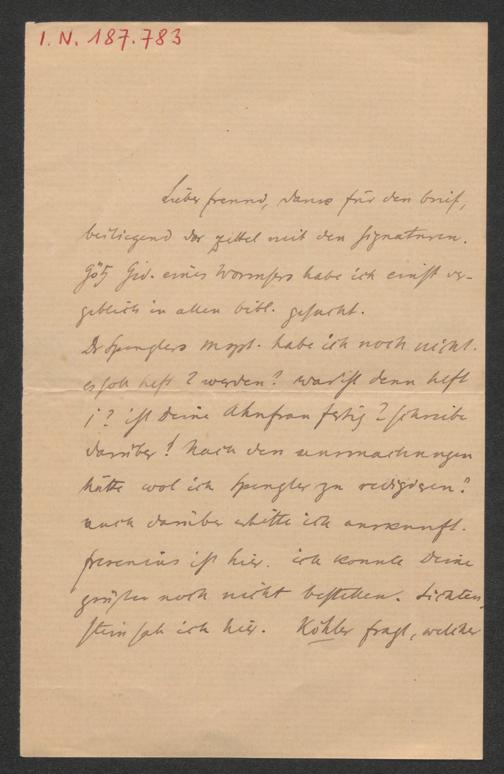 I. N. 187.783
Lieber freund, dank für den brief,
beiliegend der zettel mit den signaturen.
Götz Ged. eines Wormsers habe ich einst ver-
geblich in allen bibl. gesucht.
Dr Spenglers mspt. habe ich noch nicht.
es soll heft 2 werden? was ist denn heft
1? ist deine Ahnfrau fertig? schreibe
darüber! Nach den
hätte wol ich Spengler zu redigieren?
auch darüber erbitte ich auskunft.
fresenius ist hier. ich konnte deine
grüsse noch nicht bestellen. Lichten-
stein sah ich hier. Köhler fragt, welcher